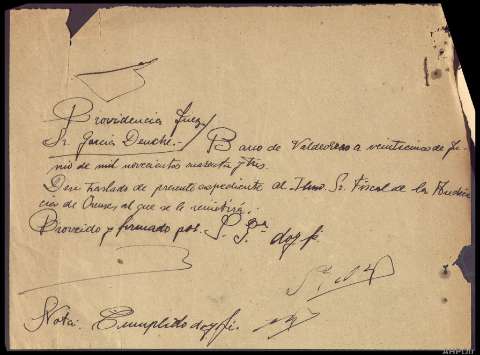 Providencia Juez
Sr. García Denche.-/ Barco de Valdeorras a veinticinco de ju-
nio de mil novecientos cuarenta y tres.
Dese traslado de presente expediente al Iltmo. Sr. Fiscal de la Audien-
cia de Orense, al que se le remitirá.
Proveido y firmado por S. Sª doy fé.
Nota: Cumplido doy fé.